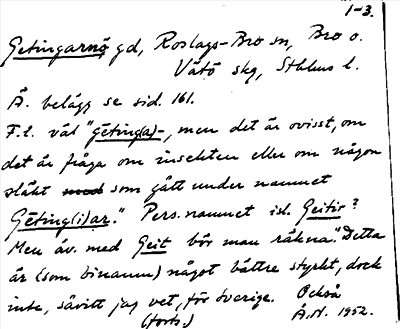 1-3.
Getingarnö gd, Roslags-Bro sn, Bro o.
Vätö skg, Sthlms l.
Ä. belägg se sid. 161.
F.l. väl "geting(a)-, men det är ovisst, om
det är fråga om insekten eller om någon
släkt som gått under namnet
Gēting(i)ar." Pers.namnet isl. Geitir?
Men äv. med Geit bör man räkna." Detta
är (som binamn) något bättre styrkt, dock
inte, såvitt jag vet, för Sverige. Också
(forts.) Å.N. 1952.